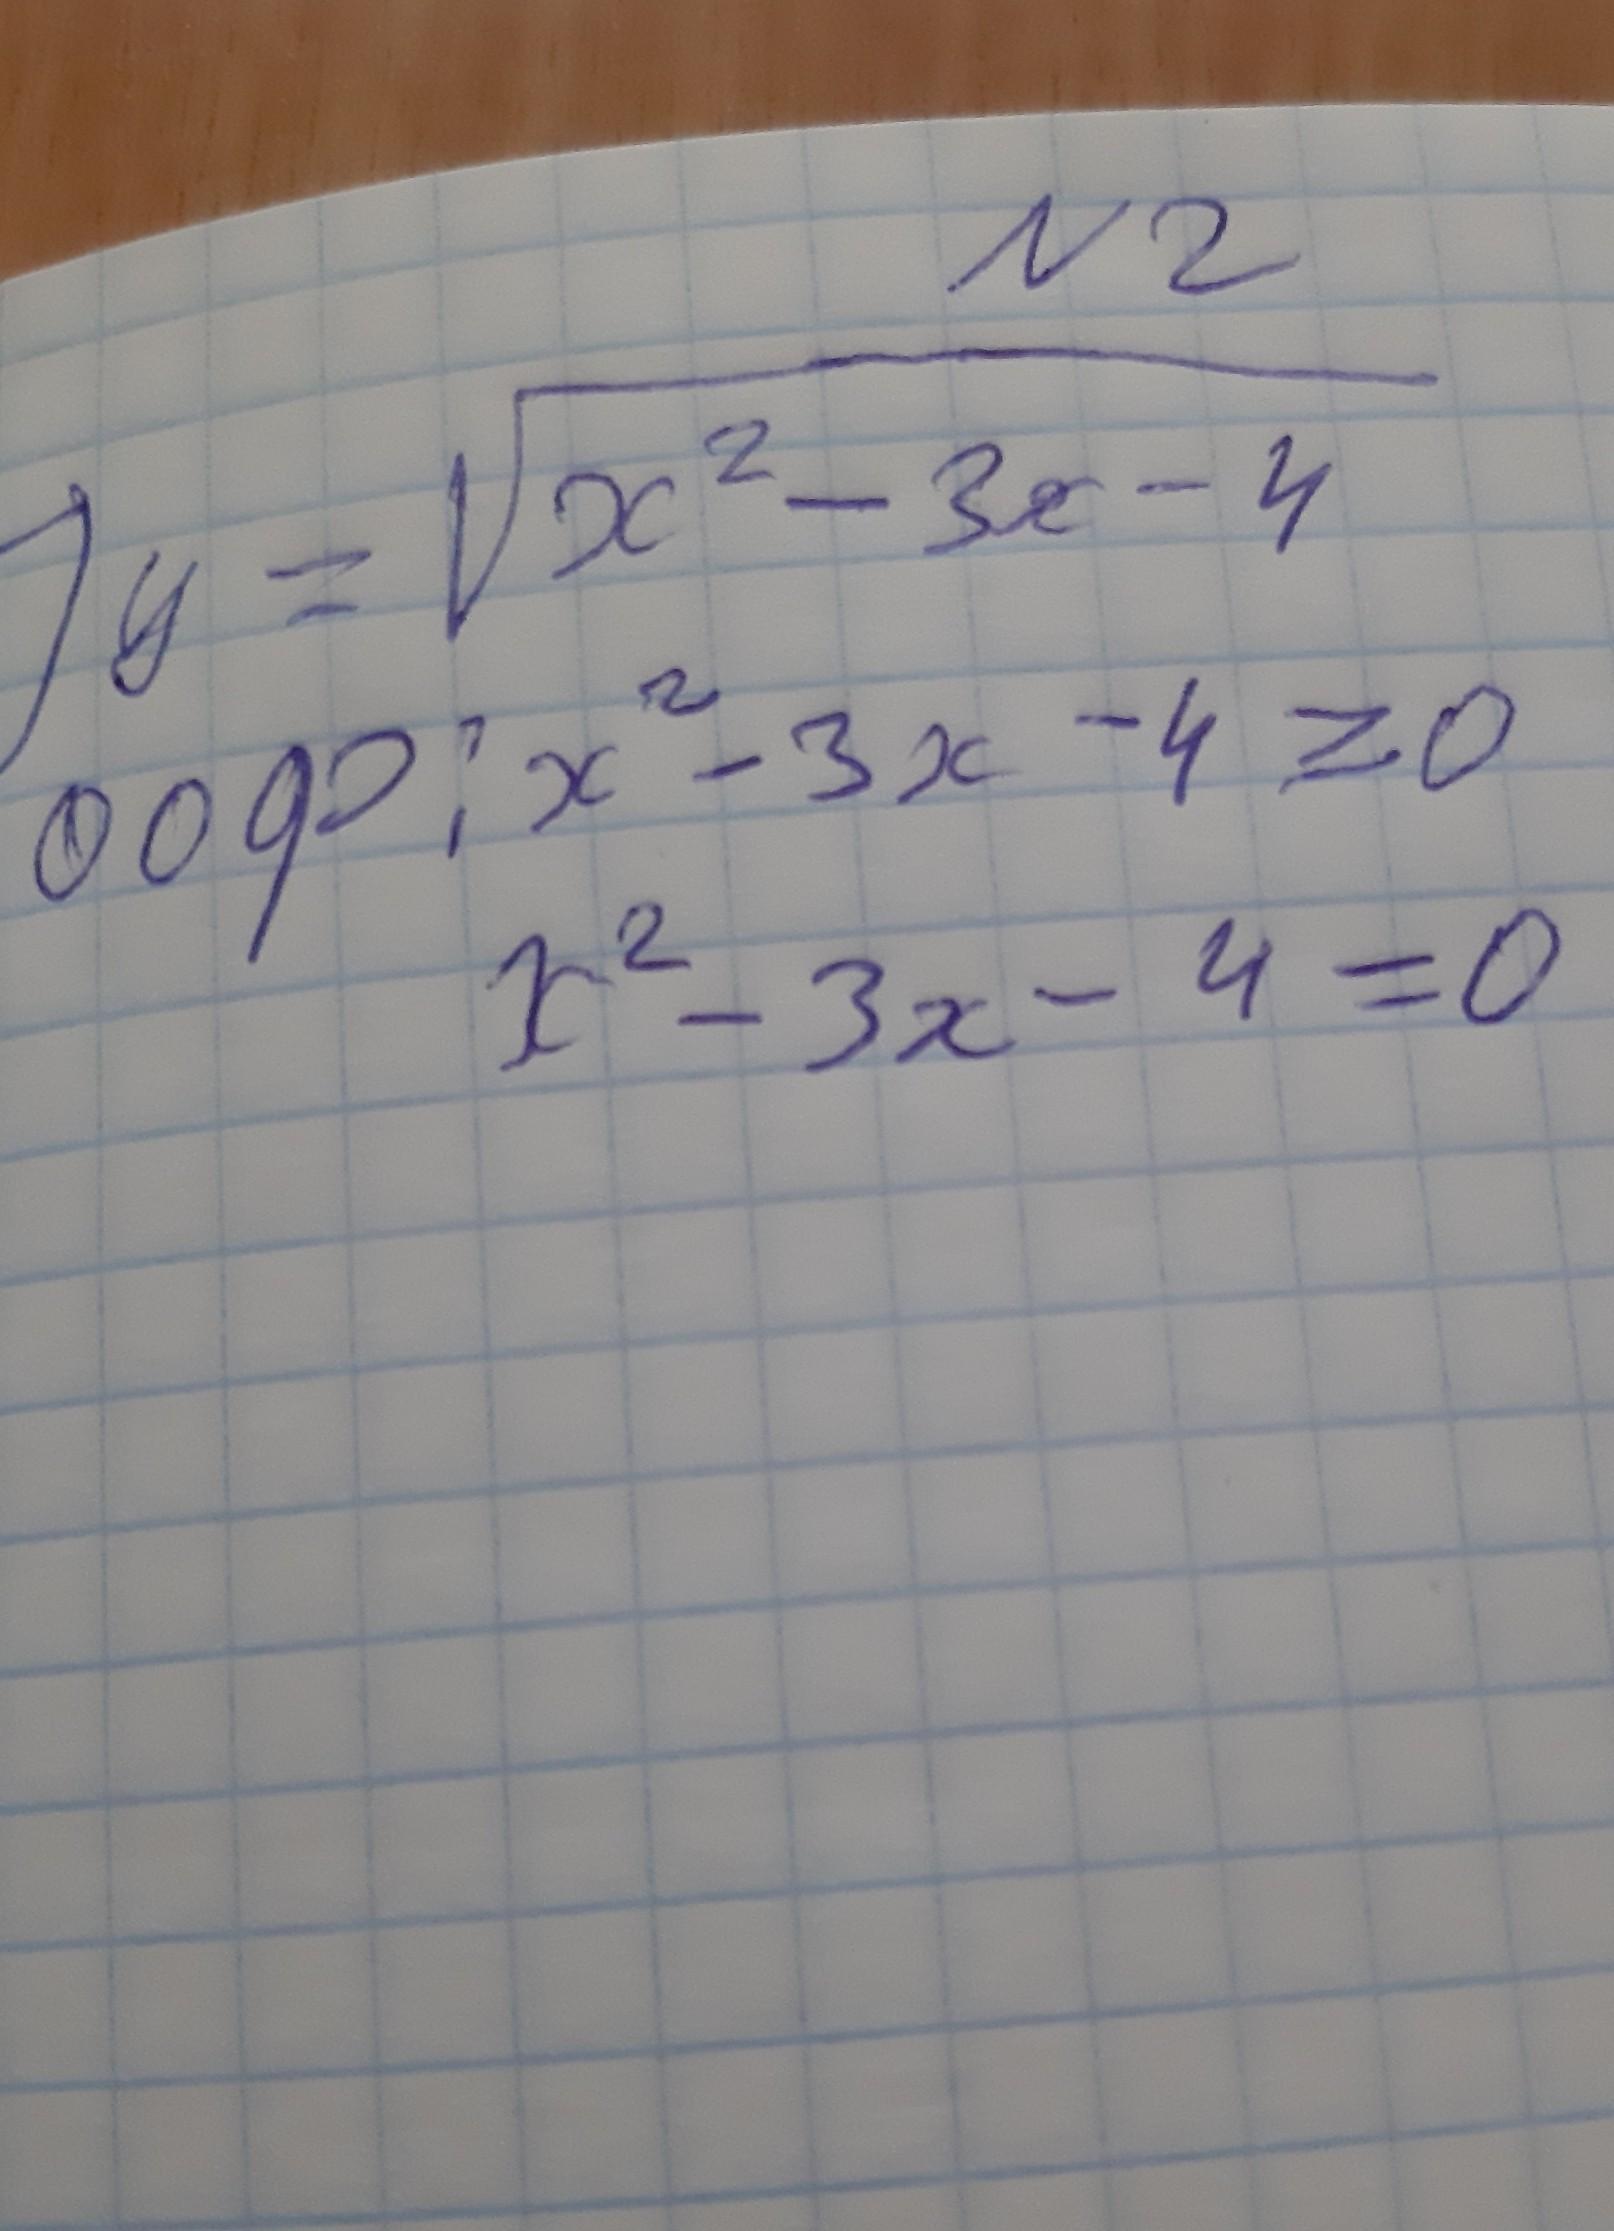 N 2
) y = √(x² - 3x - 4)
ООФ: x² - 3x - 4 ≥ 0
x² - 3x - 4 = 0